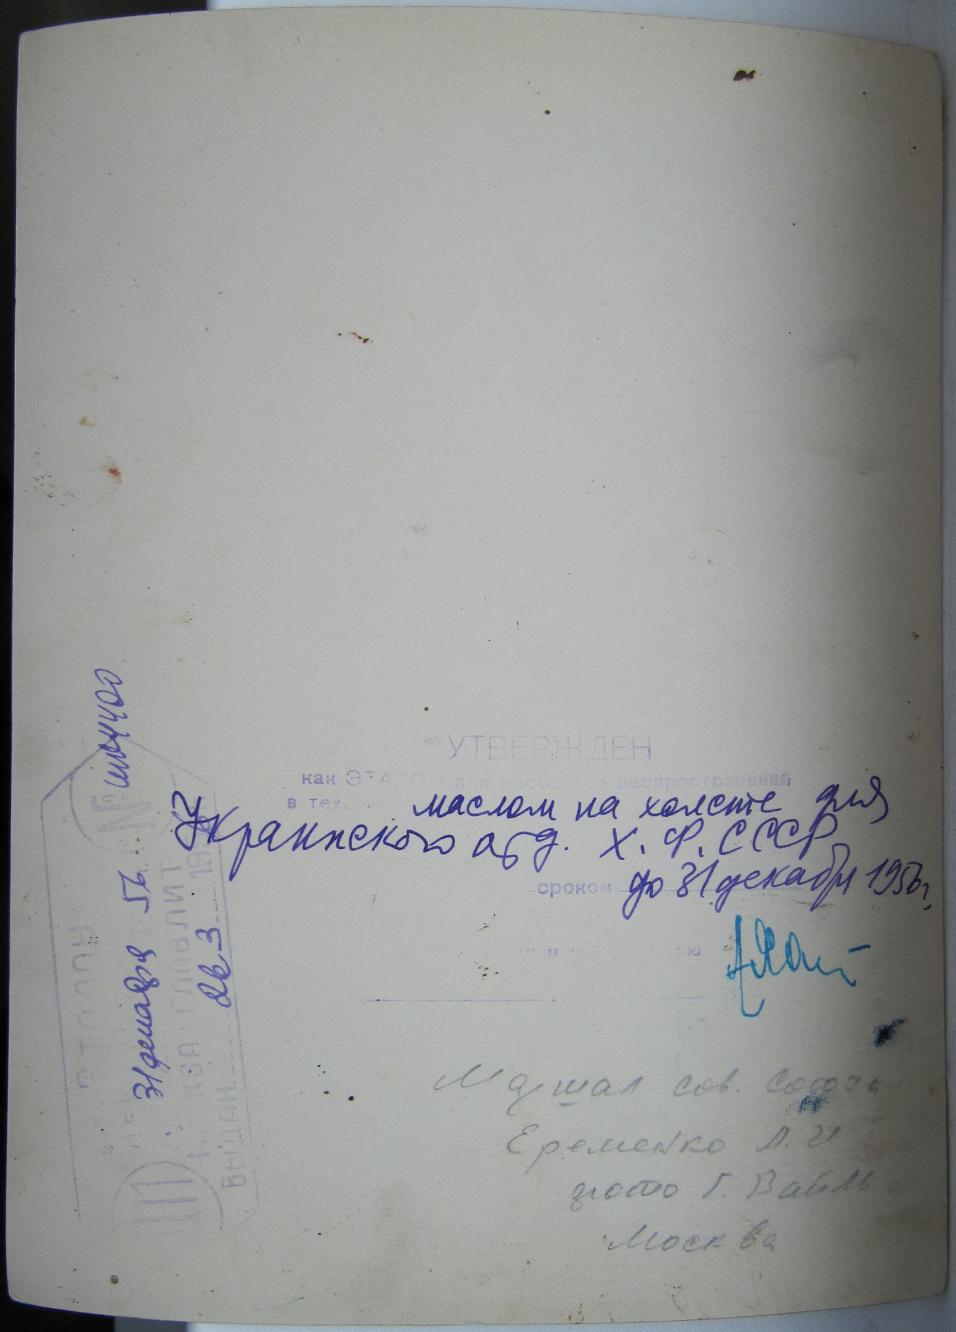 УТВЕРЖДЕН
как ЭТАЛОН для массового распространения
в тех. маслом на холсте для
Украинского отд. Х. Ф. СССР
сроком до 31 декабря 1956 г.
Маршал сов. Союза
Еременко А. И
фото Г. Вайль
Москва
ЭТАЛОН
№
31 декабря 56
ГЛАВЛИТ
ВЫДАН